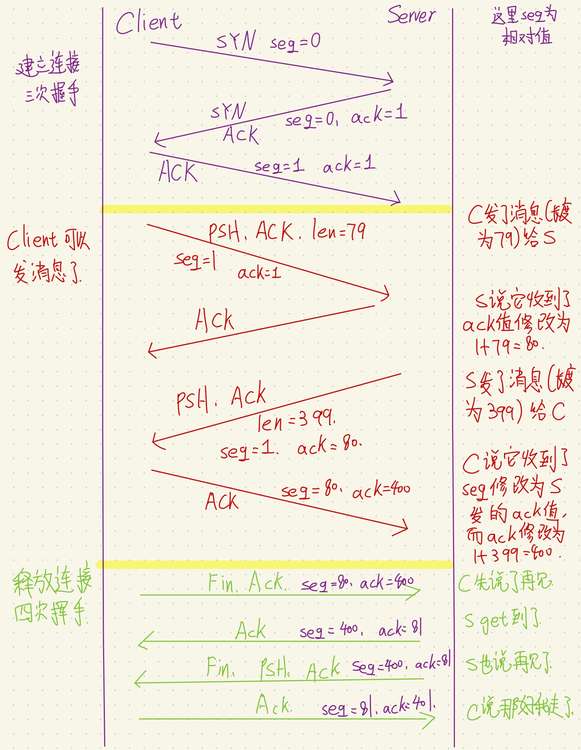 Client
Server
这里seq为
相对值
SYN seq=0
建立连接
三次握手
SYN
ACK
seq=0, ack=1
ACK
seq=1 ack=1
C发了消息(长度
为79)给S
Client可以
发消息了.
PSH. ACK. len=79
seq=1
ack=1
S说它收到了
ack值修改为
1+79=80.
ACK
S发了消息(长度
为399)给C
PSH. ACK
len=399.
seq=1. ack=80.
C说它收到了
seq修改为S
发的ack值,
而ack修改为
1+399=400.
ACK
seq=80, ack=400
释放连接
四次挥手.
Fin. Ack. seq=80, ack=400
C先说了再见
Ack seq=400, ack=81
S get到了.
Fin. PSH. Ack seq=400, ack=81
S也说再见了.
Ack. seq=81, ack=401.
C说那好我走了.